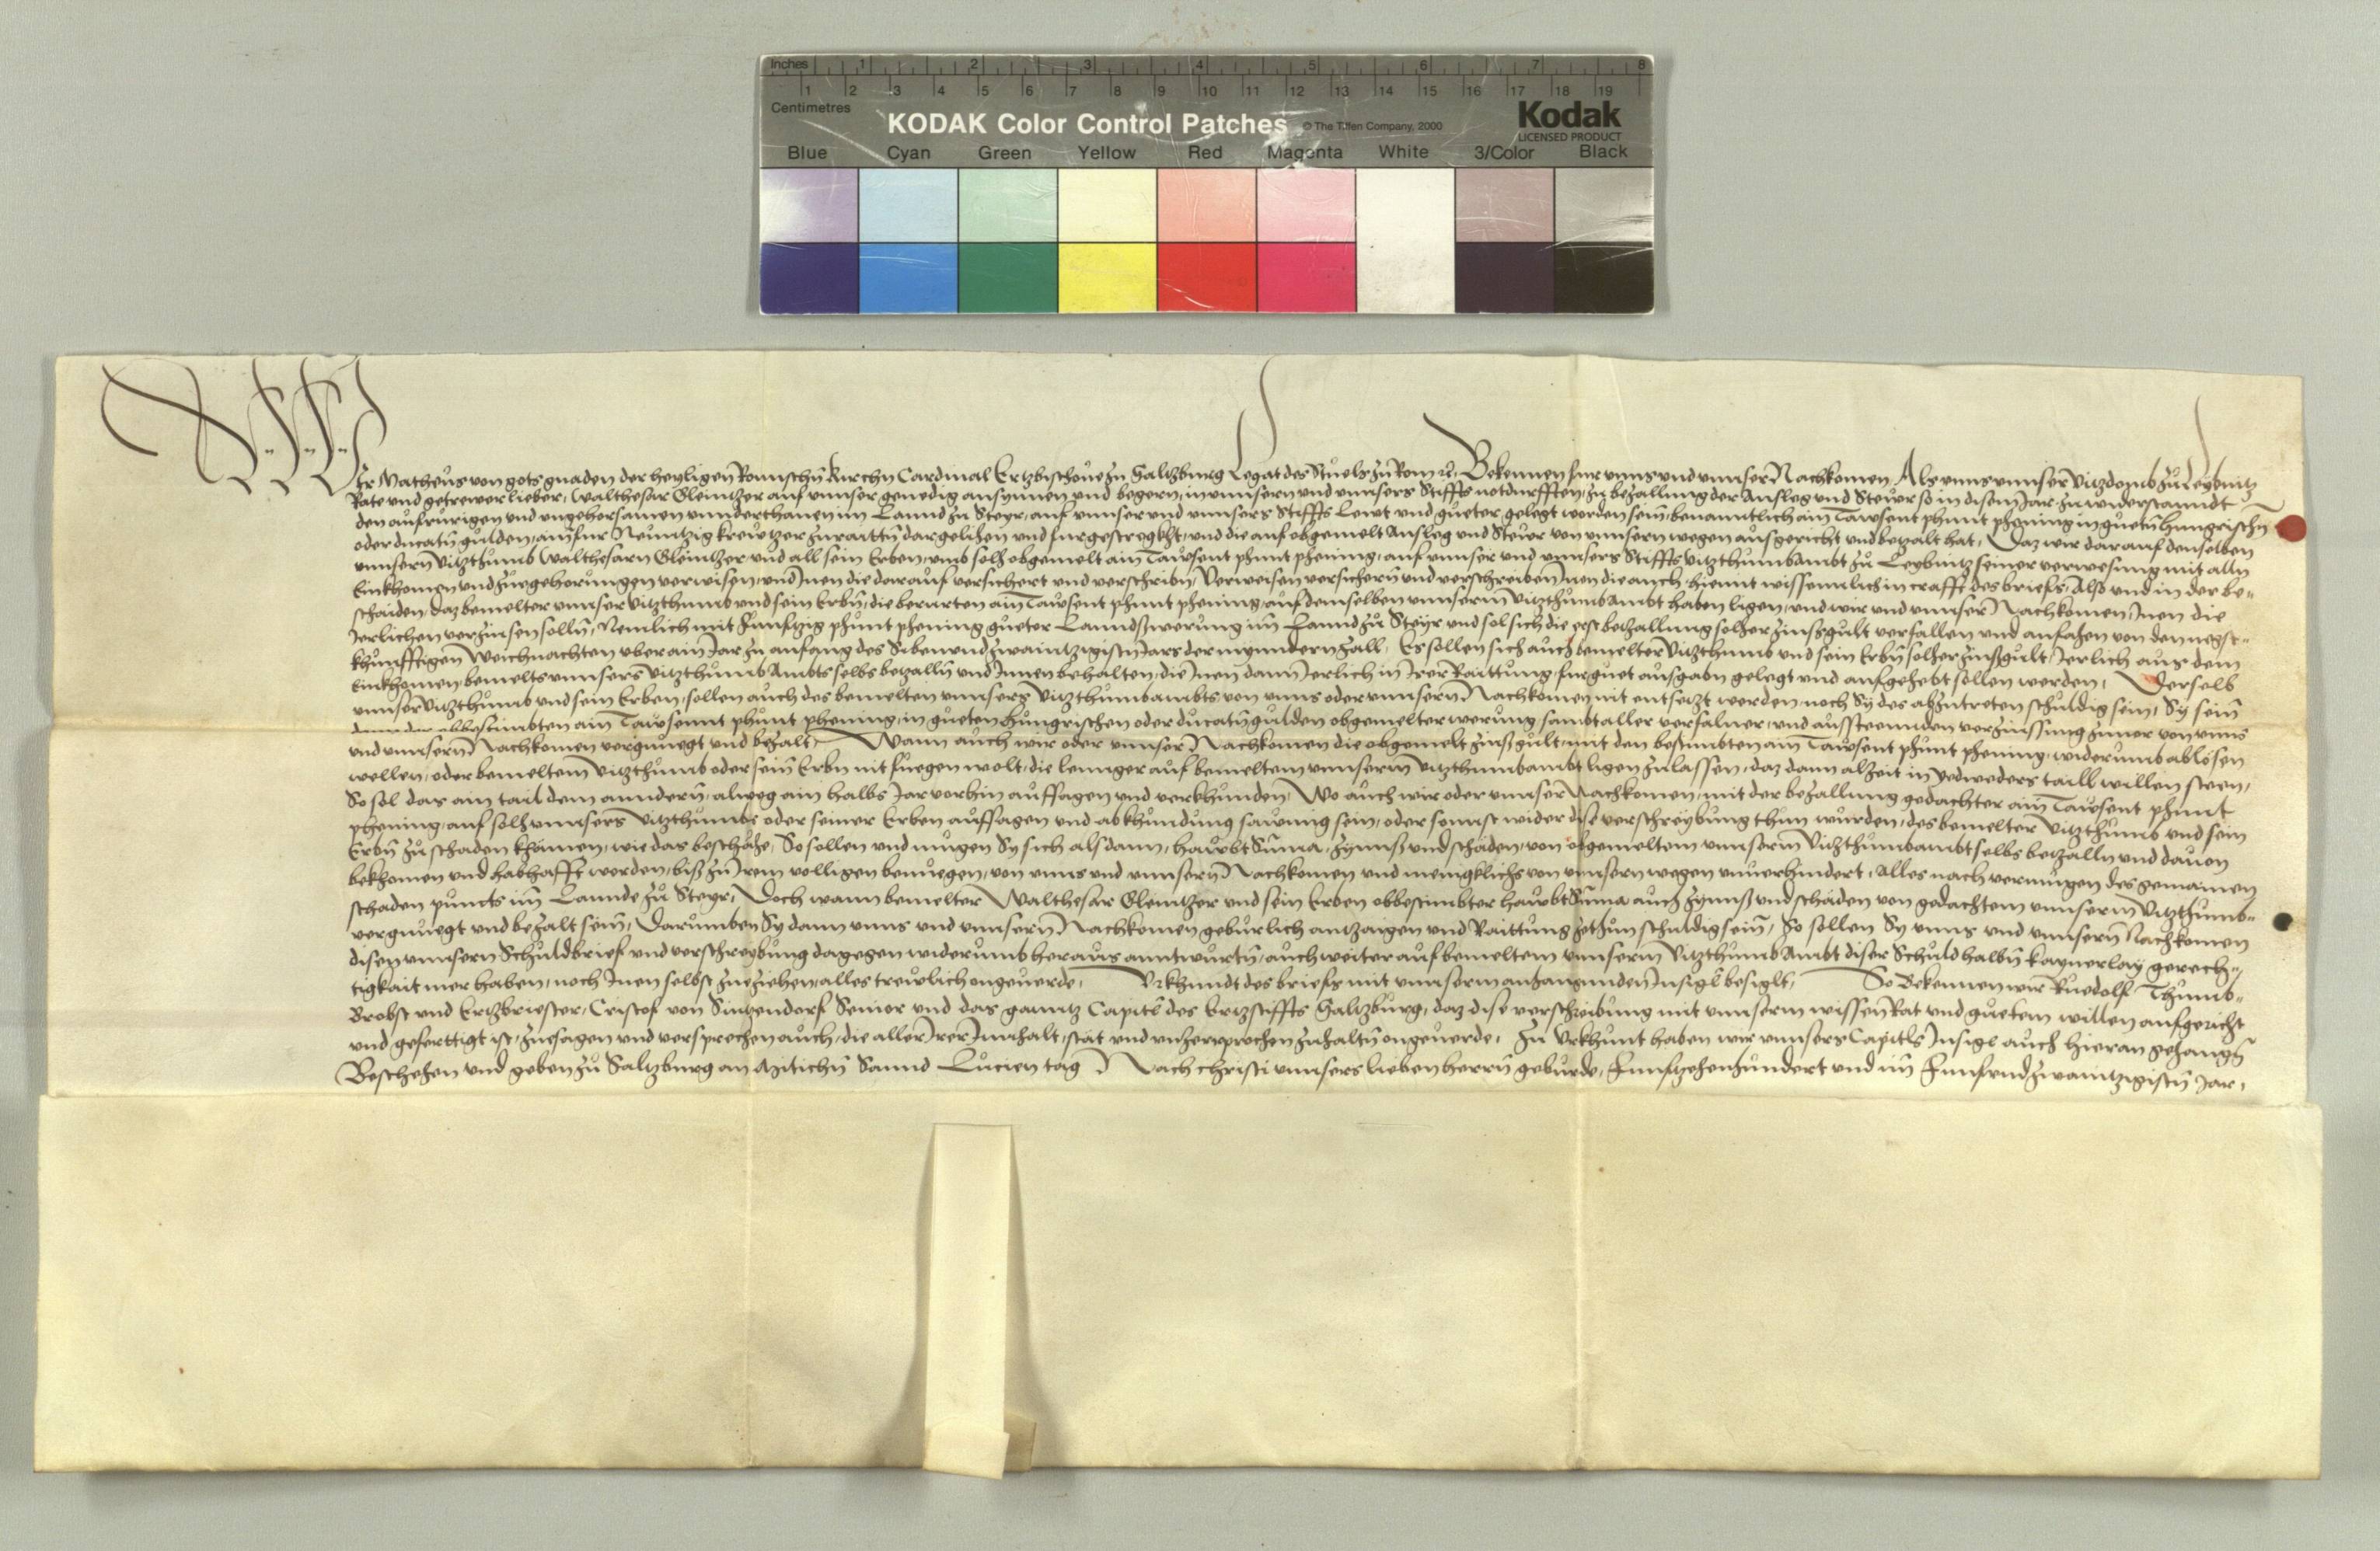 Inches 1 2 3 4 5 6 7 8
Centimetres 1 2 3 4 5 6 7 8 9 10 11 12 13 14 15 16 17 18 19
KODAK Color Control Patches © The Tiffen Company, 2000 Kodak
LICENSED PRODUCT
Blue Cyan Green Yellow Red Magenta White 3/Color Black
WIr Matheus von gots gnaden der heyligen Romischn̄ Kirchn Cardinal Ertzbischoue zu Saltzburg Legat des Stuels zu Rom ꝛc̄ Bekennen fur vnns vnd vnnser Nachkomen, Als vnns vnnser Vitzdomb zu Leybnitz
Rate vnd getrewer lieber, Walthesar Gleintzer auf vnnser genedig ansynnen vnd begern, in vnnsern vnd vnnsers Stiffts notdurfften, zu bezallung der Ansleg vnd Steur so in disem Jar zu widerstanndt
den aufrurigen vnd vngehorsamen vnnderthanen im Lannd zu Steyr, auf vnnser vnd vnnsers Stiffts Lewt vnd gueter, gelegt worden sein, benanntlich ain Tawsent phunt phening in guetn̄ hungrischn̄
oder ducatn̄ gulden, ain fur Newntzig krewtzer zuraittn̄ dargelihen vnd furgestregkht, vnd die auf obgemelt Ansleg vnd Stewr von vnnsern wegen ausgericht vnd betzalt hat, Daz wir darauf denselben
vnnsern̄ Vitzthumb Walthesarn Gleintzer vnd all sein Erben, vmb solh obgemelt ain Tawsent phunt phening, auf vnnser vnd vnnsers Stiffts Vitzthumbambt zu Leybnitz seiner verwesung mit alln
Einkhomen vnd zuegehorungen verwisen, vnd Inen die darauf versichert vnd verschribn̄, Verweisen versichern vnd verschreiben Inen die auch hiemit wissenntlich in crafft des briefs, Also vnd in der be-
schaiden, daz bemelter vnnser Vitzthumb vnd sein Erbn̄, die berurten ain Tawsent phunt phening, auf demselben vnnserm Vitzthumbambt haben ligen, vnd wir vnd vnnser Nachkomen Inen die
Jerlichen verzinsen solln̄, Nemlich mit Funfftzig phunt phening gueter Lanndßwerung im Lannd zu Steyr vnd sol sich die erst betzallung solher zinßgult verfallen vnd anfahen von den negst-
khunfftigen Weichnachten vber ain Jar zu anfang des Sibenvndzwaintzigistn̄ Jars der mynndern Zall, Es sollen sich auch bemelter Vitzthumb vnd sein Erbn̄ solher zinßgult, Jerlich aus dem
Einkhomen bemelts vnnsers Vitzthumb Ambts selbs betzalln̄ vnd Innen behalten, die Inen dann Jerlich in Irer Raittung fur guet ausgaben gelegt vnd aufgehebt sollen werden, Derselb
vnnser Vitzthumb vnd sein Erben, sollen auch des bemelten vnnsers Vitzthumbambts von vnns oder vnnsern̄ Nachkomen nit entsetzt werden, noch Sy des abzutreten schuldig sein, Sy sein
dann der obbestimbten ain Tawsennt phunt phening, in gueten hungrischen oder ducatn̄ gulden obgemelter werung, sambt aller verfalner, vnd aussteennden verzinssung zuuor von vnns
vnd vnnsern̄ Nachkomen vergnuegt vnd bezalt, Wann auch wir oder vnnser Nachkomen die obgemelt zinßgult, mit den bestimbten ain Tawsent phunt phening, widerumb ablösen
wellen, oder bemeltem Vitzthumb oder sein̄ Erbn nit fuegen wolt, die lennger auf bemeltem vnnserm Vitzthumbambt ligen zulassen, daz dann alzeit in yedweders taill willen steen,
So sol das ain tail dem anndern̄, alweg ain halbs Jar vorhin aufsagen vnd verkhunden, Wo auch wir oder vnnser Nachkomen, mit der bezallung gedachter ain Tawsent phunt
phening, auf solh vnnsers Vitzthumbs oder seiner Erben aufsagen vnd abkhundung sawmig sein, oder sonnst wider dise verschreybung thun wurden, des bemelter Vitzthumb vnd sein
Erbn̄ zu schaden khämen, wie das beschähe, So sollen vnd mugen Sy sich alsdann, hawbt Suma, zynnß vnd schäden, von obgemeltem vnnserm Vitzthumbambt selbs betzalln vnd dauon
bekhomen vnd habhafft werden, biß zu Irem volligen benuegen, von vnns vnd vnnsern̄ Nachkomen vnd menigklichs von vnnsern wegen vnuerhindert, Alles nach vermugen des gemainen
schaden puncts im Lannde zu Steyr, Doch wann bemelter Walthesar Gleintzer vnd sein Erben obbestimbter hawbt Suma auch zynnß vnd schäden von gedachtem vnnserm Vitzthumb-
vergnuegt vnd bezalt sein̄, Darumben Sy dann vnns vnd vnnsern̄ Nachkomen geburlich antzaigen vnd Raittung zethun schuldig sein̄, So sollen Sy vnns vnd vnnsern̄ Nachkomen
disen vnnsern Schuldbrief vnd verschreybung dagegen widerumb heraus anntwurtn̄, auch weiter auf bemeltem vnnserm Vitzthumb Ambt diser Schuld halbn̄ kaynerlay gerech-
tigkait mer haben, noch Inen selbst zueziehen, alles trewlich ongeuerde, Vrkhundt des briefs mit vnnserm anhanngunden Insigl besiglt, So Bekennen wir Ruedolf Thumb-
Brobst vnd Ertzbriester, Cristof von Sintzendorf Senior vnd das ganntz Capitl des Ertzstiffts Saltzburg, daz dise verschreibung mit vnnserm wissen Rat vnd guetem willen aufgericht
vnd geferttigt ist, zuesagen vnd versprechen auch, die aller Irer Innhalt, stät vnd vnzerprochen zuhaltn̄ ongeuerde, Zu Vrkhunt haben wir vnnsers Capitls Insigl auch hieran gehangn̄
Beschehen vnd geben zu Saltzburg an Mitichn̄ Sannd Lucien tag Nach christi vnnsers lieben herrn̄ geburde, Funftzehenhundert vnd im Funfvndzwaintzigistn̄ Jar,